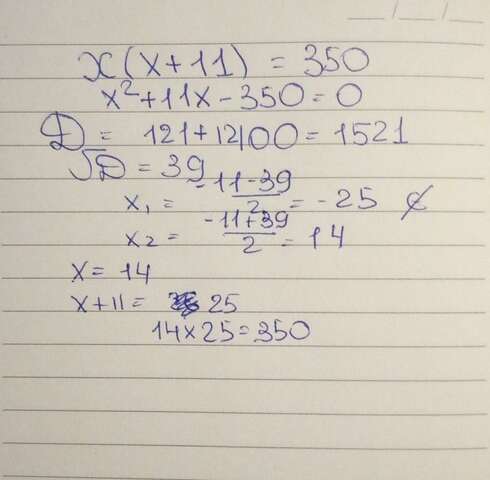 x(x+11) = 350
x²+11x-350=0
D = 121+12100=1521
√D = 39
x₁ = -11-39/2 = -25 ∉
x₂ = -11+39/2 = 14
x = 14
x+11 = 25
14x25=350